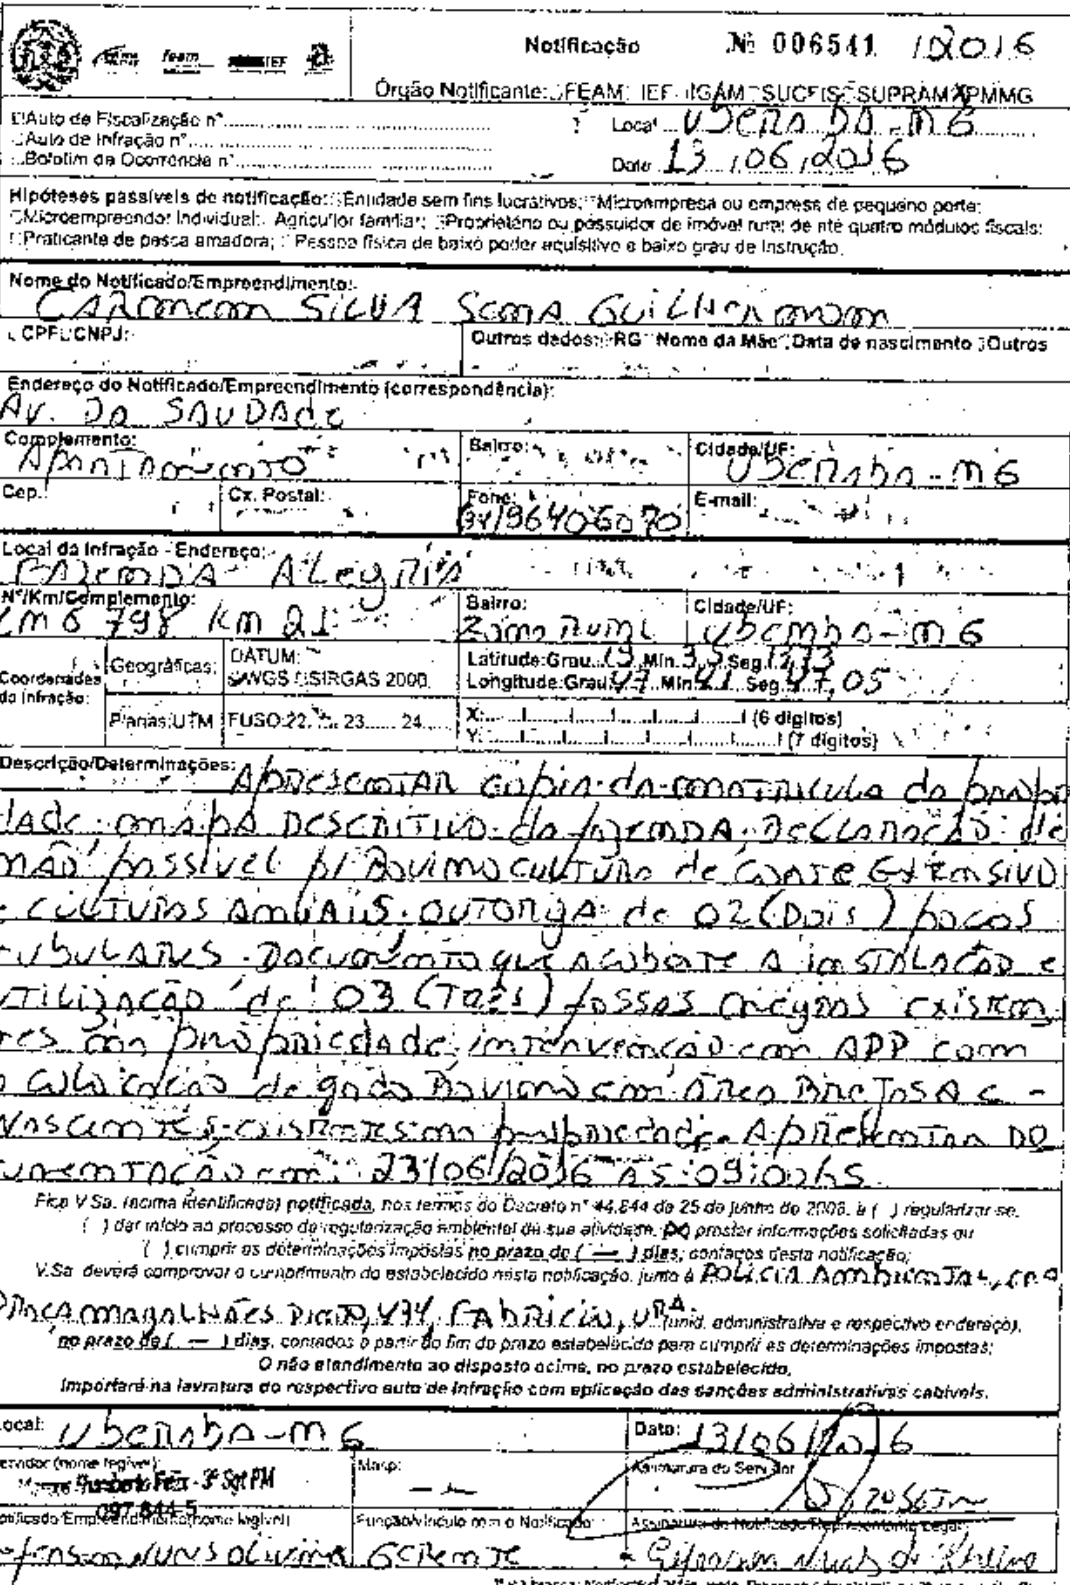 Notificação Nº 006541 /2016
Órgão Notificante: FEAM IEF IGAM SUCFIS SUPRAM X PMMG
Auto de Fiscalização nº
Local UBERABA-MG
Auto de Infração nº
Boletim de Ocorrência nº
Data 13/06/2016
Hipóteses passíveis de notificação: Entidade sem fins lucrativos; Microempresa ou empresa de pequeno porte;
Microempreendor Individual; Agricultor familiar; Proprietário ou possuidor de imóvel rural de até quatro módulos fiscais;
Praticante de pesca amadora; Pessoa física de baixo poder aquisitivo e baixo grau de instrução.
Nome do Notificado/Empreendimento:
SILVA
CPF CNPJ:
Outros dados: RG Nome da Mãe Data de nascimento Outros
Endereço do Notificado/Empreendimento (correspondência):
Av. DA SAUDADE
Complemento: Bairro: Cidade/UF:
APARTAMENTO UBERABA-MG
Cep.: Cx. Postal: Fone: E-mail:
Local da Infração - Endereço:
FAZENDA ALEGRIA
Nº/Km/Complemento: Bairro: Cidade/UF:
798 Km 21 ZONA RURAL UBERABA-MG
Coordenadas da Infração:
Geográficas: DATUM: WGS SIRGAS 2000 Latitude: Grau Min. Seg.
Longitude: Grau 47 Min. Seg. 47,05
Planas: UTM FUSO: 22 23 24 X: (6 dígitos)
Y: (7 dígitos)
Descrição/Determinações: APRESENTAR COPIA DA MATRICULA DA
DADE MAPA DESCRITIVO DA FAZENDA. DECLARAÇÃO DE
NÃO PASSIVEL P/ BOVINOCULTURA DE CORTE EXTENSIVO
E CULTURAS ANUAIS. OUTORGA DE 02 (DOIS) POCOS
TUBULARES. DOCUMENTO QUE A INSTALACÃO E
UTILIZACÃO de 03 (TRES) FOSSAS NEGRAS EXISTEN
TES NA PROPRIEDADE. INTERVENCÃO EM APP COM
A de gado BOVINO EM ÁREA
NASCENTES EXISTENTES NA PROPRIEDADE. APRESENTAR DO
CUMENTACÃO EM: 23/06/2016 AS 09:00HS
Fica V.Sa. (acima identificada) notificada, nos termos do Decreto nº 44.844 de 25 de junho de 2008, a ( ) regularizar-se,
( ) dar início ao processo de regularização ambiental de sua atividade, (X) prestar informações solicitadas ou
( ) cumprir as determinações impostas no prazo de ( — ) dias, contados desta notificação;
V.Sa. deverá comprovar o cumprimento do estabelecido nesta notificação, junto à POLICIA AMBIENTAL,
PRAÇA MAGALHÃES PINTO, 474, FABRICIO, URA. (unid. administrativa e respectivo endereço),
no prazo de ( — ) dias, contados a partir do fim do prazo estabelecido para cumprir as determinações impostas;
O não atendimento ao disposto acima, no prazo estabelecido,
importará na lavratura do respectivo auto de infração com aplicação das sanções administrativas cabíveis.
Local: UBERABA-MG Data: 13/06/2016
Servidor (nome legível): Masp: Assinatura do Servidor
3º Sgt PM
097.844-5
Notificado/Empreendimento (nome legível) Função/Vínculo com o Notificado: Assinatura do Notificado/Representante Legal
NUNES OLIVEIRA GERENTE